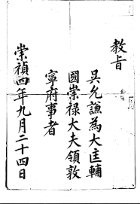 敎旨
吳允謙爲大匡輔
國崇祿大夫領敦
寧府事者
崇禎四年九月二十四日